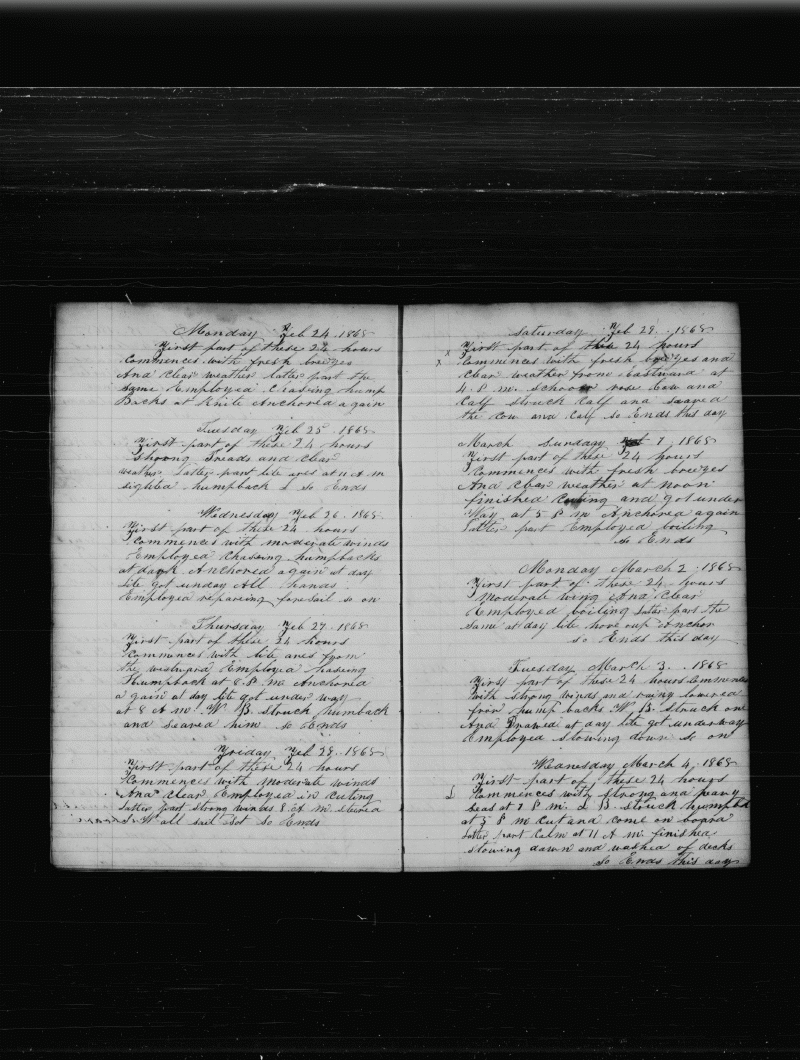 Monday Feb 24 1868
First part of these 24 hours
Commences with fresh breezes
And Clear weather latter part the
Same Employed Chasing hump
Backs at Knite Anchored again
Tuesday Feb 25 1868
First part of these 24 hours
Strong Treads and Clear
weather Latter part lite ares at 11 A m
sighted humpback L so Ends
Wednesday Feb 26 1868
First part of these 24 hours
Commences with moderate winds
Employed Chaseing humpbacks
at dark Anchored again at day
lite got unday All hands
Employed repareing foresail so on
Thursday Feb 27 1868
First part of these 24 hours
Commences with lite ares from
the westward Employed chaseing
Humpback at 8 P m Anchored
a gain at day lite got under way
at 8 A m W B struck humback
and seaved him so Ends
Friday Feb 28 1868
First part of these 24 hours
Commences with moderate winds
And Clear Employed in Cuting
Latter part strong winds 8 A m steared
S W all sail Sot So Ends
Saturday Feb 29 1868
First part of these 24 hours
x
Commences with fresh breezes and
x
Clear weather from Eastward at
4 P m schooner rose Cow and
Calf struck Calf and seaved
the Cow and Calf so Ends this day
March Sunday 1, 1868
First part of these 24 hours
Commences with fresh breezes
And Clear weather at noon
finished Cuting and got under
Way at 5 P m Anchored again
Latter part Employed boiling
so Ends
Monday March 2, 1868
First part of these 24 hours
Moderate wing And Clear
Employed boiling Latter part the
same at day lite hove oup Anchor
so Ends this day
Tuesday March 3. 1868
First part of these 24 hours Commences
with strong winds and lowered
from hump backs W B struck one
And Drawed at day lite got underway
Employed stowing down so on
Wanesday March 4, 1868
First part of these 24 hours
Commences with strong and
seas at 1 P m. L B struck humpbk
at 5 P m Cut and come on board
Latter part Calm at 11 A m finished
stowing down and washed of decks
so Ends this day